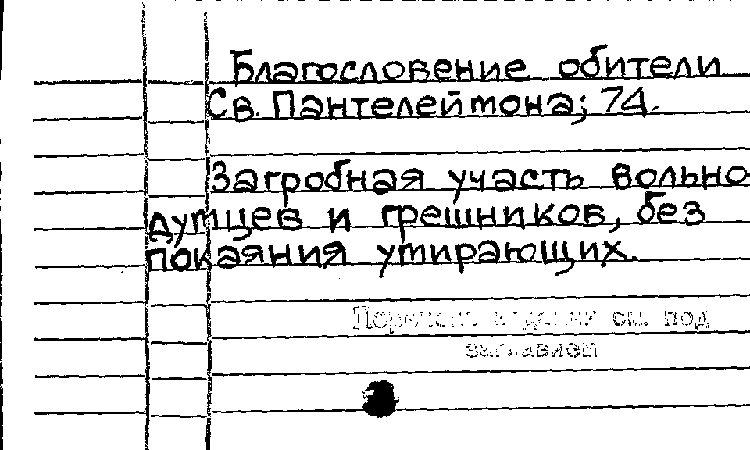 Благословение обители
Св. Пантелеймона; 74.
Загробная участь вольно
думцев и грешников, без
покаяния умирающих.
см. под
заглавием